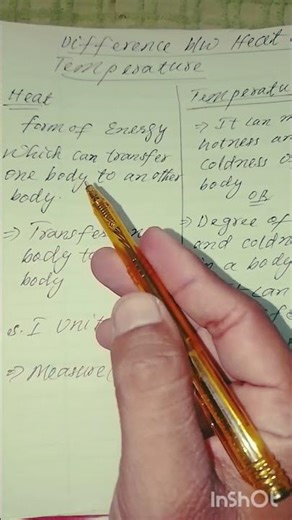 Difference b/w Heat
Temperature
Heat
form of Energy
which can transfer
one body to an other
body.
⇒ Transfer
body to
body
S.I Unit
⇒ Measure
Temperatu
⇒ It can m
hotness an
coldness o
body
OR
⇒ Degree of
and coldn
in a body
can
InShOt